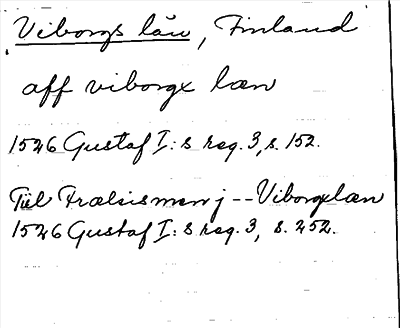 Viborgs län, Finland
aff viborgx læn
1526 Gustaf I:s reg. 3, s. 152.
Till Frælsismen j -- Viborgxlæn
1526 Gustaf I:s reg. 3, s. 252.